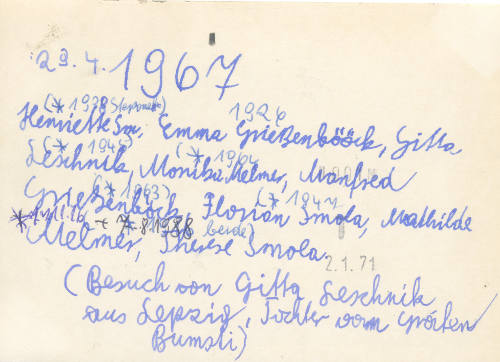 29.4.1967
(*1938 1926
Henriette Emma Grießenböck, Gitta
(*1945) (*1964
Leschnik, Monika Melmer, Manfred
(*1963) (*1944
Grießenböck, Florian Smola, Mathilde
beide)
Melmer, Therese Smola
2.1.71
(Besuch von Gitta Leschnik
aus Leipzig, Tochter vom
Bumsti)